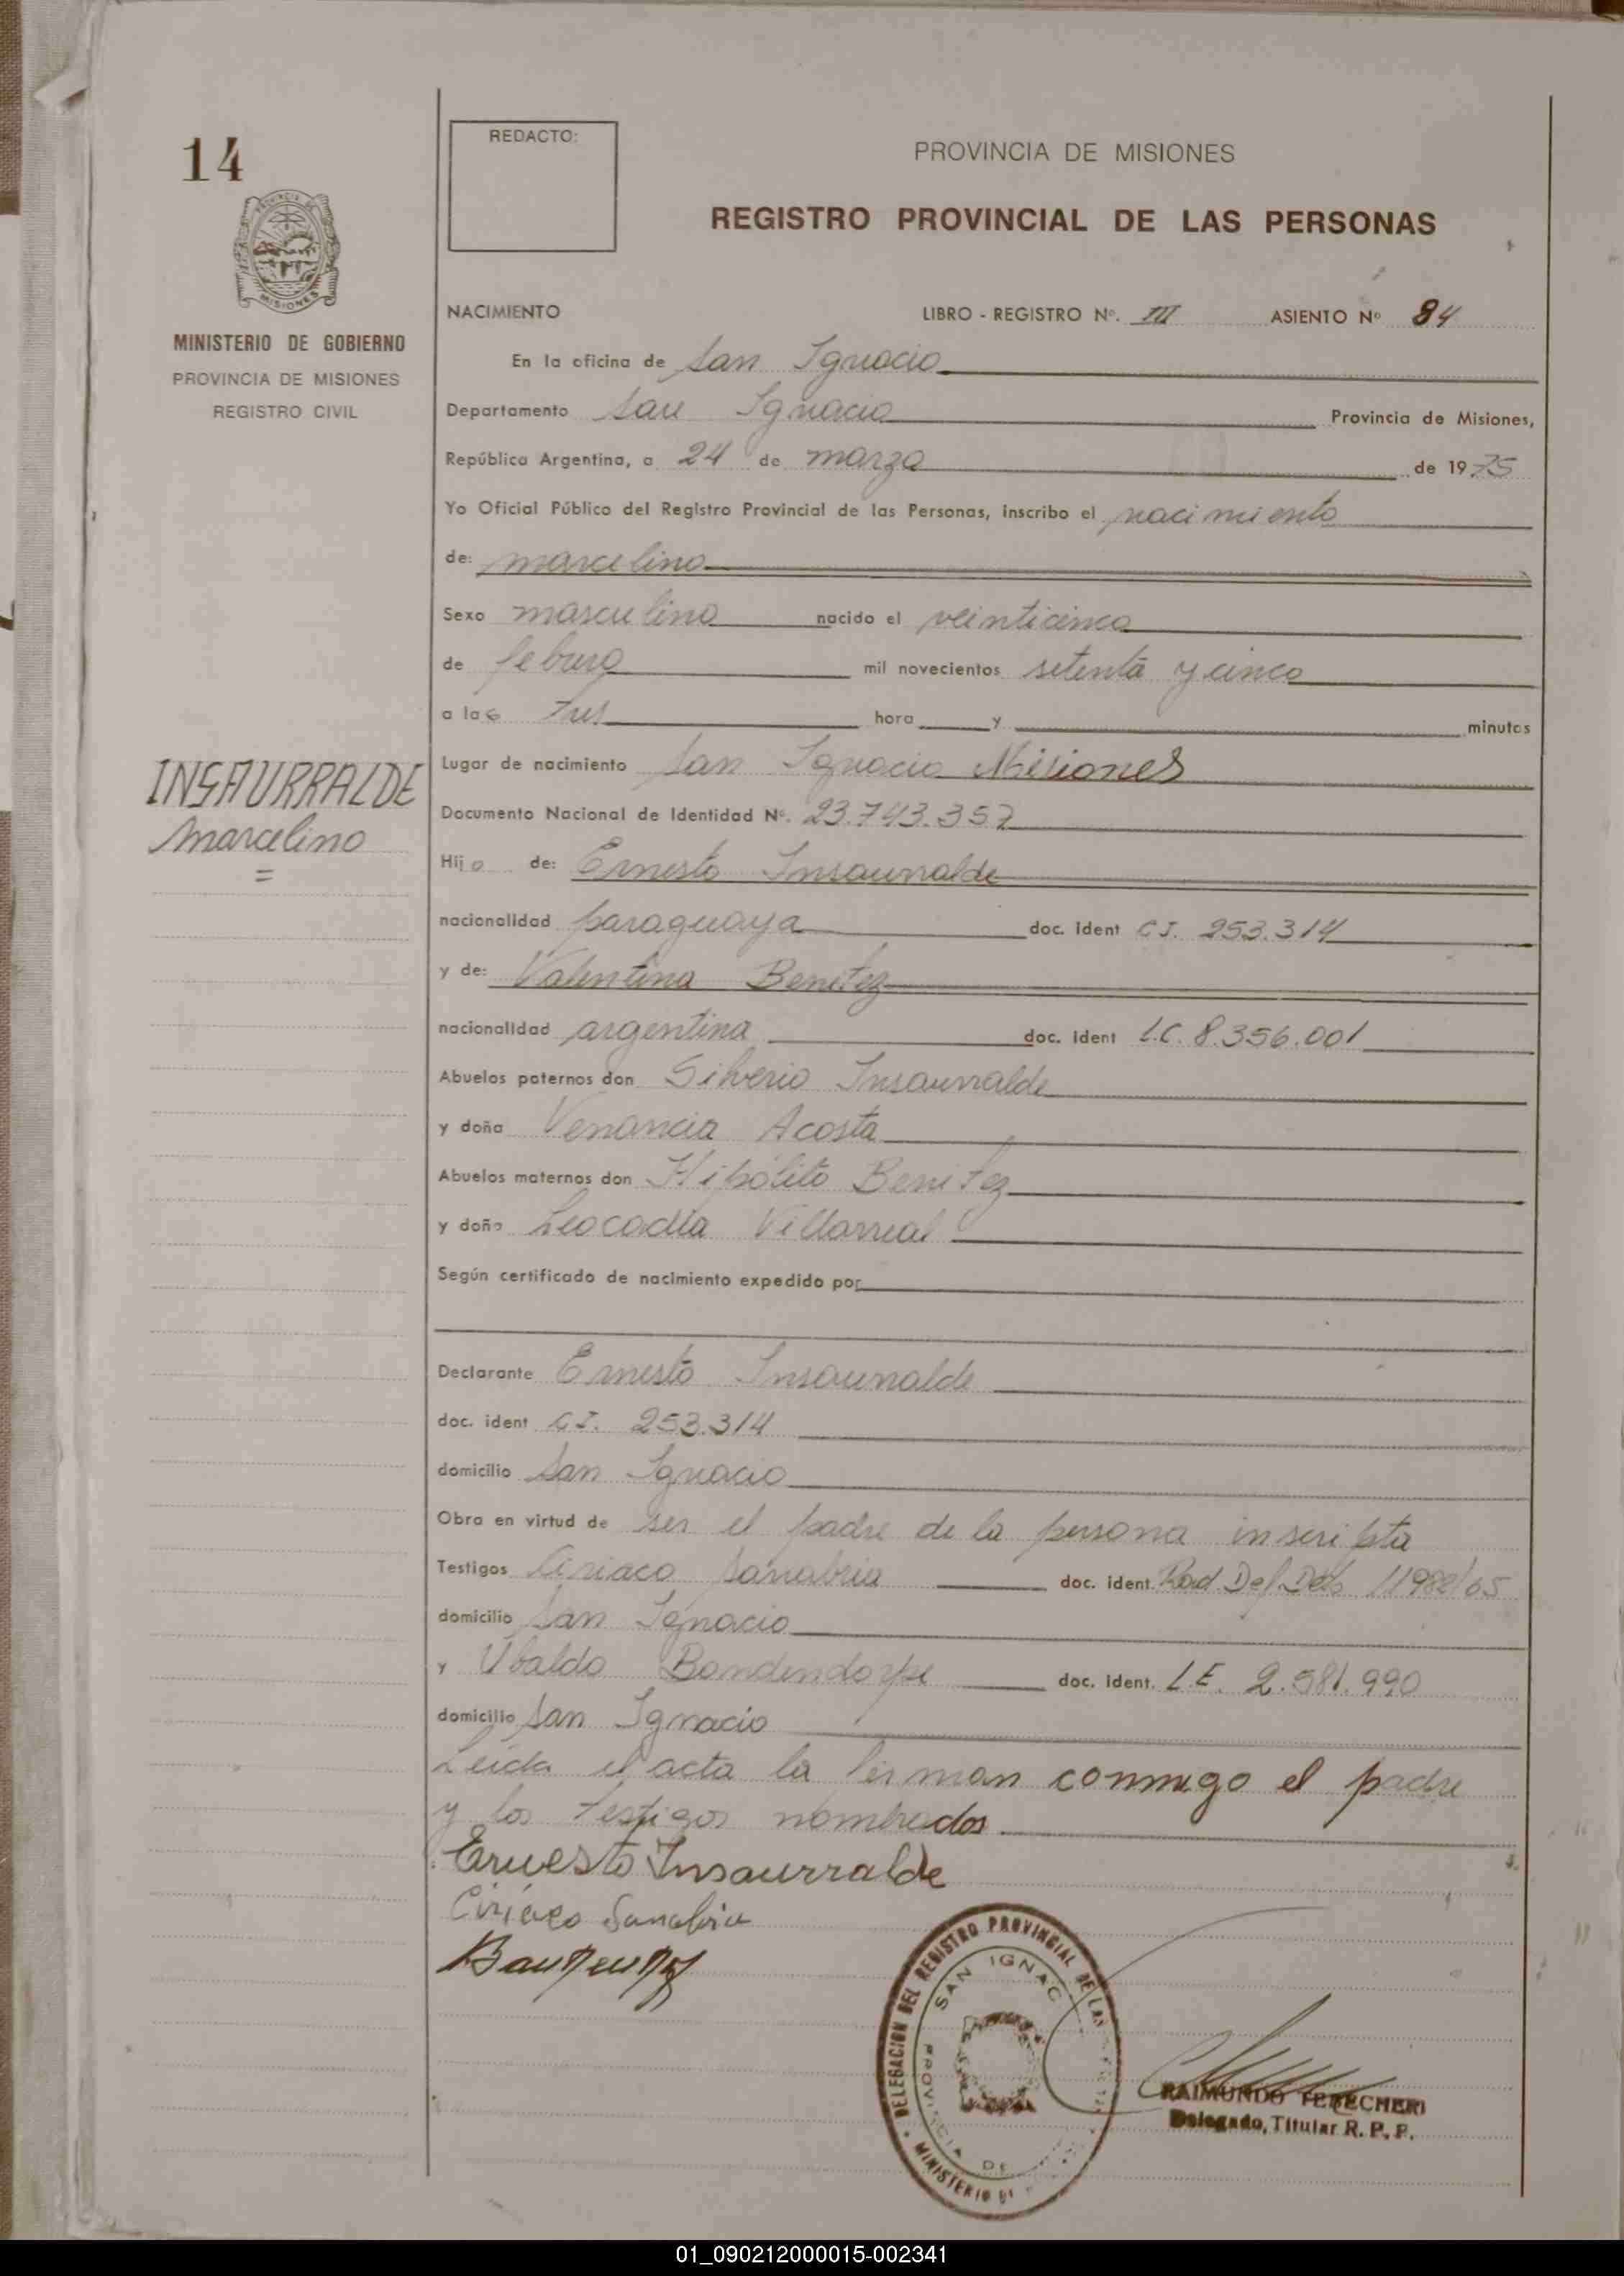 14
REDACTO:
PROVINCIA DE MISIONES
REGISTRO PROVINCIAL DE LAS PERSONAS
PROVINCIA DE
MISIONES
MINISTERIO DE GOBIERNO
PROVINCIA DE MISIONES
REGISTRO CIVIL
NACIMIENTO LIBRO - REGISTRO Nº. III ASIENTO Nº 84
En la oficina de San Ignacio
Departamento San Ignacio Provincia de Misiones,
República Argentina, a 24 de marzo de 1975
Yo Oficial Público del Registro Provincial de las Personas, inscribo el nacimiento
de: marcelino
Sexo masculino nacido el veinticinco
de febrero mil novecientos setenta y cinco
a las tres hora y minutos
Lugar de nacimiento San Ignacio Misiones
INSAURRALDE
Marcelino
=
Documento Nacional de Identidad Nº. 23.743.357
Hijo de: Ernesto Insaurralde
nacionalidad paraguaya doc. ident C.I. 253.314
y de: Valentina Benitez
nacionalidad argentina doc. ident L.C. 8.356.001
Abuelos paternos don Silverio Insaurralde
y doña Venancia Acosta
Abuelos maternos don Hipólito Benitez
y doña Leocadia Villarreal
Según certificado de nacimiento expedido por
Declarante Ernesto Insaurralde
doc. ident C.I. 253.314
domicilio San Ignacio
Obra en virtud de ser el padre de la persona inscripta
Testigos Ciriaco Sanabria doc. ident. Rad. Def. 11982/65
domicilio San Ignacio
y Ubaldo Bondendorpe doc. ident. L.E. 2.581.990
domicilio San Ignacio
Leída el acta la firman conmigo el padre
y los testigos nombrados
Ernesto Insaurralde
Ciriaco Sanabria
DELEGACION DEL REGISTRO PROVINCIAL DE LAS
SAN IGNAC
PROVINCIA DE
MINISTERIO
RAIMUNDO TERECHERI
Delegado, Titular R. P. P.
01_090212000015-002341